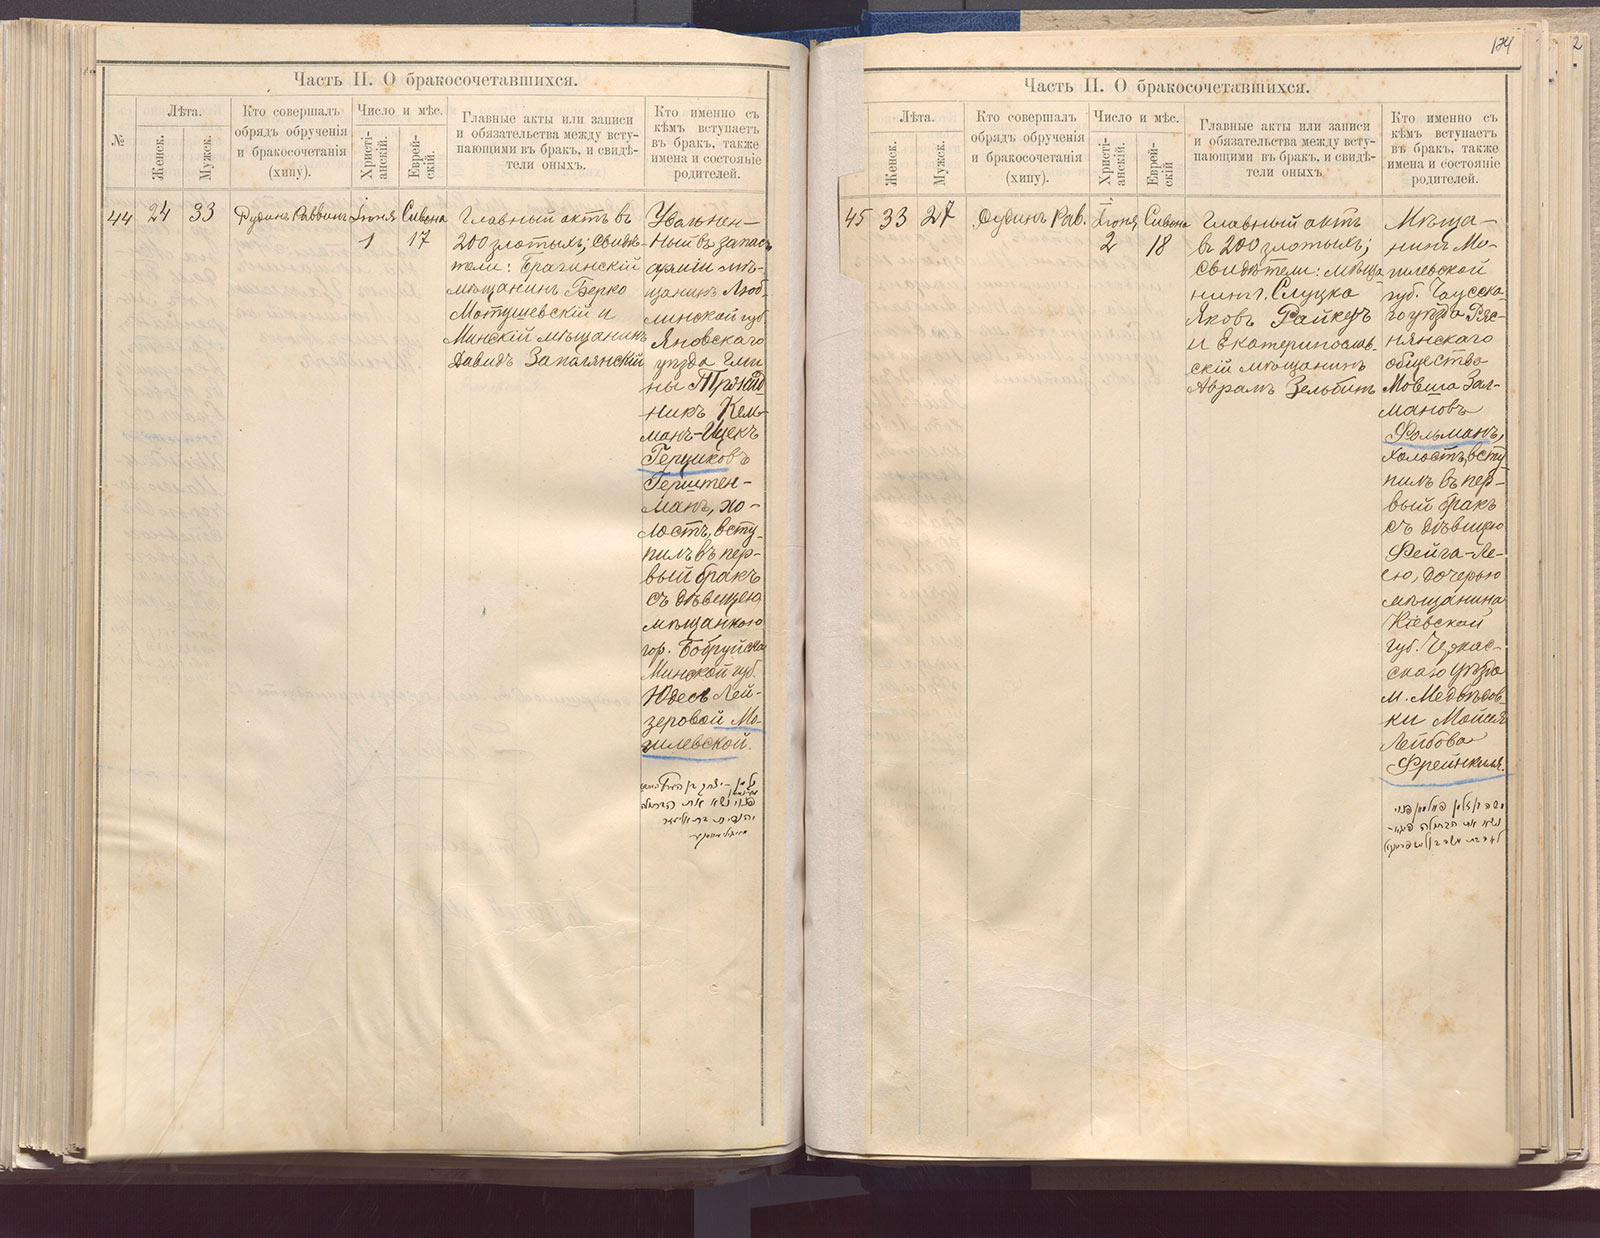 Часть II. О бракосочетавшихся.
№
Лѣта.
Женск.
Мужск.
Кто совершалъ
обрядъ обрученія
и бракосочетанія
(хипу).
Число и мѣс.
Христі-
анскій.
Еврей-
скій.
Главные акты или записи
и обязательства между всту-
пающими въ бракъ, и свидѣ-
тели оныхъ.
Кто именно съ
кѣмъ вступаетъ
въ бракъ, также
имена и состояніе
родителей.
44
24
33
Раввинъ
Іюня
1
Сивона
17
Главный актъ въ
200 злотыхъ; свидѣ-
тели: Брагинскій
мѣщанинъ Берко
Мотушевскій и
Минскій мѣщанинъ
Давидъ
Уволнен-
ный въ запасъ
арміи мѣ-
щанинъ Люб-
линской губ.
Яновскаго
уѣзда Гми-
ны
никъ Кель-
манъ-Ицекъ
Герциковъ
Герштен-
манъ, хо-
лостъ, всту-
пилъ въ пер-
вый бракъ
съ дѣвицею
мѣщанкою
гор. Бобруйска
Минской губ.
Юдесъ Лей-
зеровой Мо-
гилевской.
Часть II. О бракосочетавшихся.
124
2
Лѣта.
Женск.
Мужск.
Кто совершалъ
обрядъ обрученія
и бракосочетанія
(хипу).
Число и мѣс.
Христі-
анскій.
Еврей-
скій
Главные акты или записи
и обязательства между всту-
пающими въ бракъ, и свидѣ-
тели оныхъ
Кто именно съ
кѣмъ вступаетъ
въ бракъ, также
имена и состояніе
родителей.
45
33
27
Рав.
Іюня
2
Сивона
18
Главный актъ
въ 200 злотыхъ;
свидѣтели: мѣща-
нинъ г. Слуцка
Яковъ
и Екатеринослав-
скій мѣщанинъ
Абрамъ Зельбинъ
Мѣща-
нинъ Мо-
гилевской
губ. Чаусска-
го уѣзда Ряс-
нянскаго
общества
Мовша Зал-
мановъ
Фольманъ,
холостъ, всту-
пилъ въ пер-
вый бракъ
съ дѣвицею
Фейга-Ле-
ею, дочерью
мѣщанина
Кіевской
губ. Черкас-
скаго уѣзда
м. Медвѣдов-
ки
Лейбова
Френкиля.